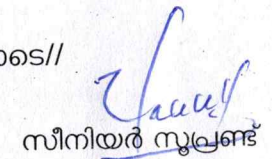 ാടെ//
സീനിയർ സൂപ്രണ്ട്